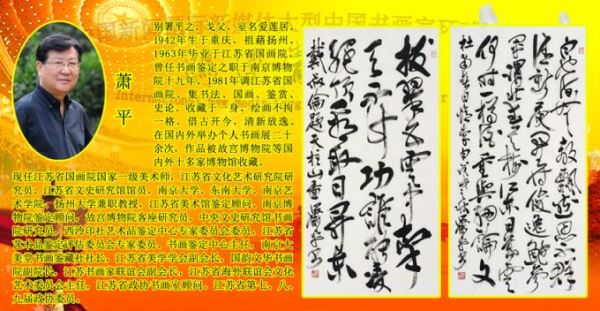 萧平
别署平之、戈父,室名爱莲居。
1942年生于重庆,祖籍扬州,
1963年毕业于江苏省国画院,
曾任书画鉴定之职于南京博物
院十九年,1981年调江苏省国
画院,集书法、国画、鉴赏、
史论、收藏于一身,绘画不拘
一格,借古开今,清新放逸。
在国内外举办个人书画展二十
余次,作品被故宫博物院等国
内外十多家博物馆收藏。
现任江苏省国画院国家一级美术师,江苏省文化艺术研究院研
究员、江苏省文史研究馆馆员,南京大学、东南大学、南京艺
术学院、扬州大学兼职教授,江苏省美术馆鉴定顾问、南京博
物院鉴定顾问、故宫博物院客座研究员、中央文史研究馆书画
院研究员、西泠印社艺术品鉴定中心专家委员会委员、江苏省
艺术品鉴定评估委员会专家委员、书画鉴定中心主任、南京大
美堂书画鉴藏社社长、江苏省美学学会副会长、国韵文华书画
院副院长、江苏书画家联谊会副会长、江苏省海外联谊会文化
艺术委员会主任,江苏省政协书画室顾问、江苏省第七、八、
九届政协委员。
白也詩無敵飄然思不群
清新庾開府俊逸鮑參
軍渭北春天樹江東日暮雲
何時一樽酒重與細論文
杜甫春日憶李白
拔翠五雲中擎
天不計功誰能凌
絕頂看取日昇東
戴叔倫題天柱山圖